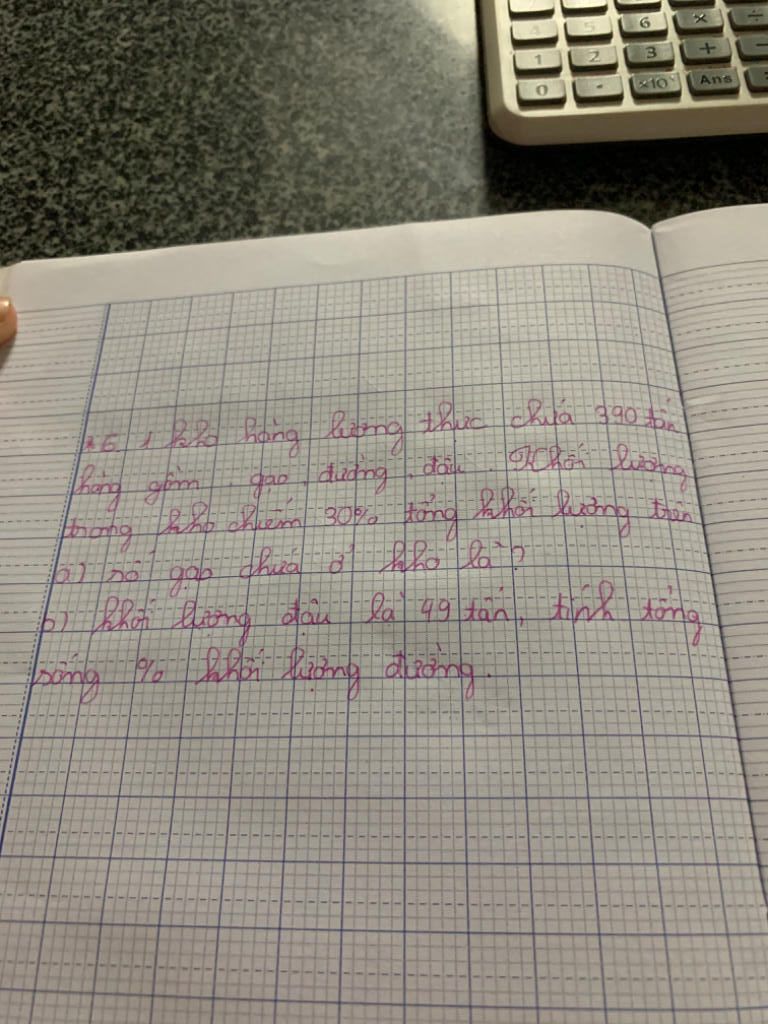 4 5 6 × ÷
1 2 3 + −
0 . ×10ˣ Ans
1 kho hàng lương thực chứa 390 tấn
hàng gồm gạo, đường, đậu. Khối lượng
trong kho chiếm 30% tổng khối lượng trên
a) số gạo chứa ở kho là?
b) khối lượng đậu là 49 tấn, tính tổng
số % khối lượng đường.